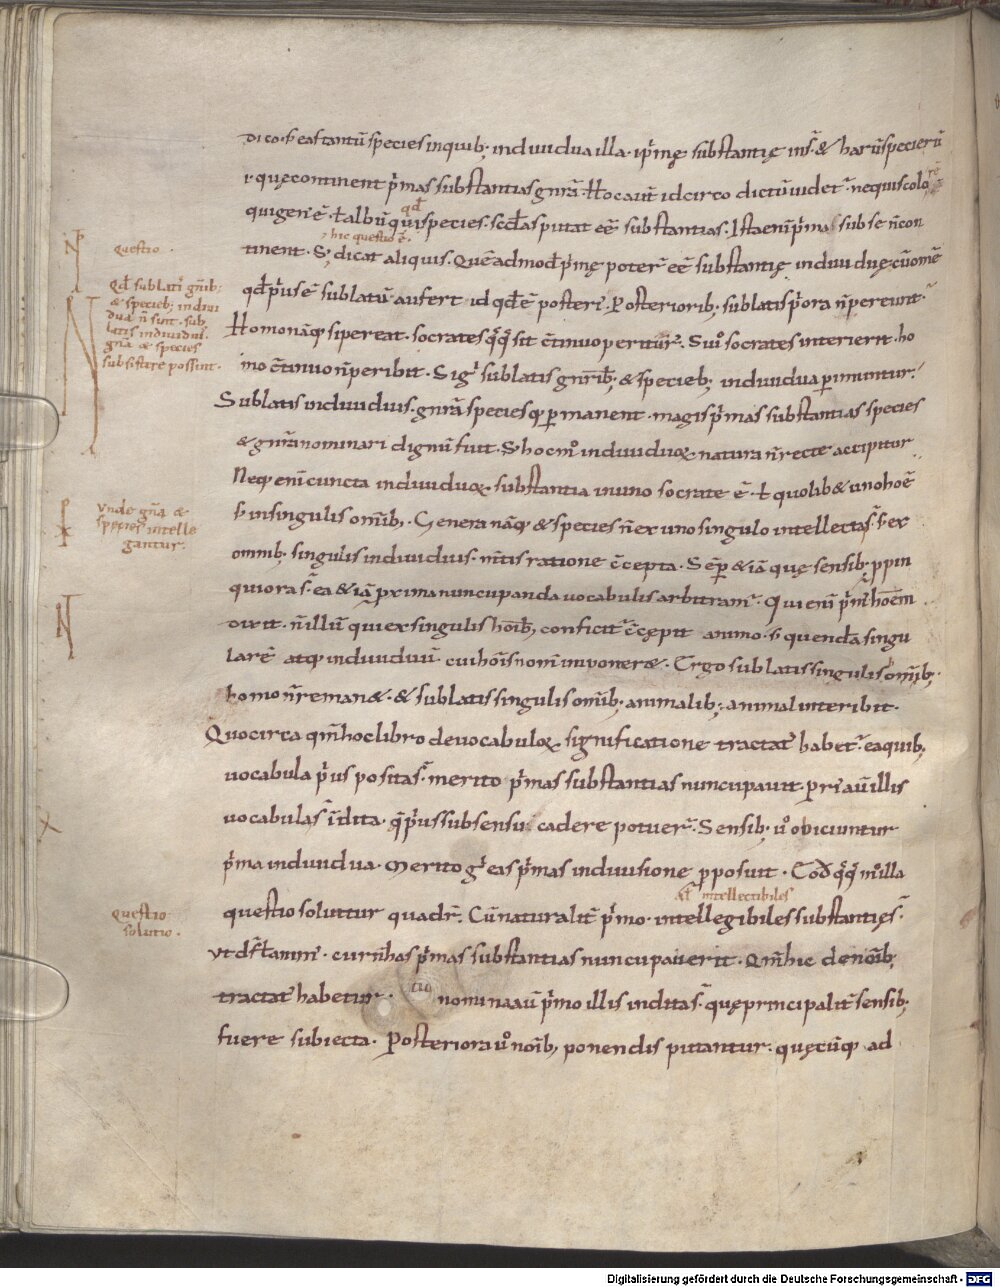 dico. sʼ eas tantū species in quib; individua illa. i. p̄mę substantię ins̄t. & harū specierū
i. quę continent p̄mas substantias gn̄ra. Hoc aut̄ idcirco dictū videt᷑. ne quis colorē
qui gen᷑ ē. ł albū qđ species. scd̄as putet eē substantias. Ista enī p̄mas sub se n̄ con
hic questio ē.
tinent. S; dicat aliquis. Quēadmod̄ p̄mę poter᷑ eē substantię individuę. cū omē
qđ p̄us ē sublatū aufert id qđ ē posteri᷑. Posteriorib; sublatis p̄ora n̄ pereunt.
Homo nāq; si pereat. socrates q̄q̄ sit c̄tinuo peritur᷑. Si v̊ socrates interierit. ho
mo c̄tinuo n̄ peribit. Si g̊ sublatis gn̄rib; & specieb; individua perimuntur.
Sublatis individuis. gn̄ra species q; p̄manent. magis p̄mas substantias species
& gn̄ra nominari dignū fuit. S; hoc m̊ individuoꝝ natura n̄ recte accipitur.
Neq; enī cuncta individuoꝝ substantia in uno socrate ē. ł quolib& uno hoē
sʼ in singulis om̄ib;. Genera nāq; & species n̄ ex uno singulo intellecta s̄. sʼ ex
omnib; singulis individuis. m̄tis ratione c̄cepta. Sēp & iā quę sensib; ppin
quiora s̄. ea & iā proxima nuncupanda vocabulis arbitram᷑. Qui enī p̄m̊ hoēm
dixit. n̄ illū qui ex singulis hoīb; conficit᷑ c̄cępit animo. sʼ quendā singu
larē atq; individuū. cui hoīs nom̄ imponer&. Ergo sublatis singulis om̄ib;
homo n̄ reman&. & sublatis singulis om̄ib; animalib; animal interibit.
Quocirca qm̄ hoc libro de vocabuloꝝ significatione tractat᷑ habet᷑. ea quib;
vocabula p̄us posita s̄. merito p̄mas substantias nuncupavit. Pri᷑ aū illis
vocabula s̄ īdita. q̄ p̄us sub sensū cadere potuer᷑. Sensib; v̊ obiciuntur
p̄ma individua. Merito g̊ eas p̄mas in divisione p̄posuit. Eod̄ q̄q̄ m̊ illa
ał intellectibiles
questio soluitur quadr̄. Cū naturalit᷑ p̄mo. intellegibiles substantię s̄.
ut d̄s łammi᷑. cur n̄ has p̄mas substantias nuncupaverit. Qm̄ hic de noīb;
tractat᷑ habetur. nomina aū p̄mo illis indita s̄. quę principalit᷑ sensib;
fuere subiecta. Posteriora v̊ noīb; ponendis putantur. quęcūq; ad
Questio.
Qđ sublatis gn̄ib;
& specieb; indivi
dua n̄ sint. sub
latis individuī.
gn̄a & species
subsistere possint.
Unde gn̄a &
species intelle
gantur.
Questio
solutio.
Digitalisierung gefördert durch die Deutsche Forschungsgemeinschaft - DFG